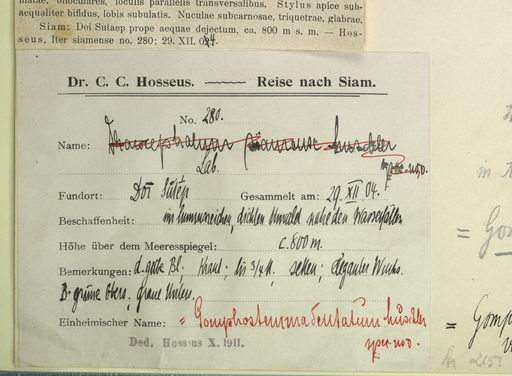 matae, biloculares, loculis parallelis transversalibus. Stylus apice sub-
aequaliter bifidus, lobis subulatis. Nuculae subcarnosae, triquetrae, glabrae.
Siam: Doi Sutaep prope aequae dejectum, ca. 800 m s. m. — Hos-
seus, Iter siamense no. 280; 29. XII. 04.
Dr. C. C. Hosseus. Reise nach Siam.
No. 280.
Name: Dracocephalum
Lab. spec. nov.
Fundort: Doi Sutep Gesammelt am: 29. XII 04.
Beschaffenheit: im humusreichen, dichten Urwald nahe den Wasserfällen
Höhe über dem Meeresspiegel: c. 800 m.
Bemerkungen: d. gelbe Bl., Kraut, bis 3/4 M, selten, eleganter Wuchs.
B. grüne Obers., graue Unters.
Einheimischer Name: = Gomphostemma dentatum Muschler
spec. nov.
Ded. Hosseus X. 1911.
=
=